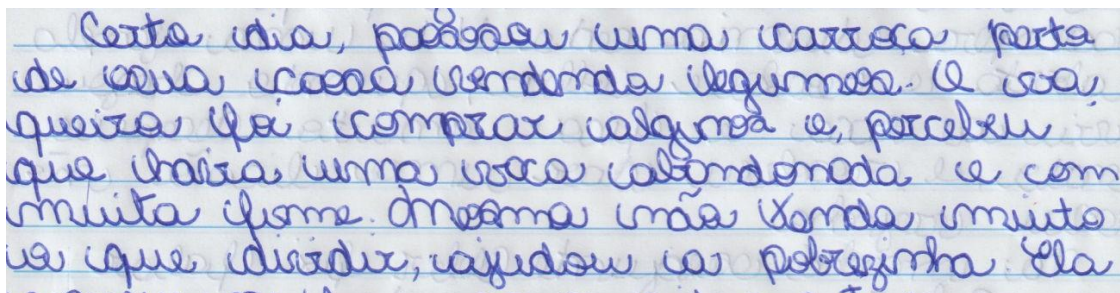 Certo dia, passou uma carroça perto
de sua casa vendendo legumes. O va
queiro foi comprar alguns e, percebeu
que havia uma vaca abandonada e com
muita fome. Mesmo não tendo muito
o que dividir, ajudou a pobrezinha. Ela